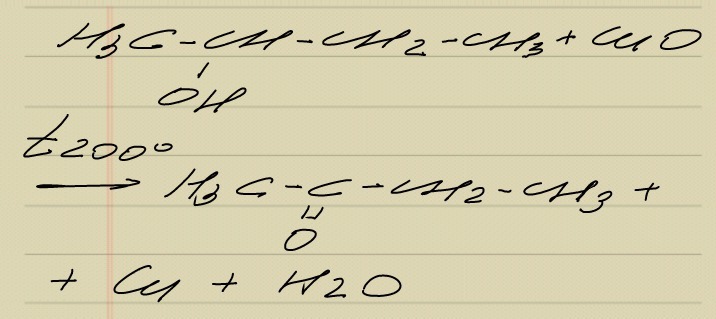 H3C-CH-CH2-CH3 + CuO
OH
t200°
→ H3C-C-CH2-CH3 +
O
+ Cu + H2O